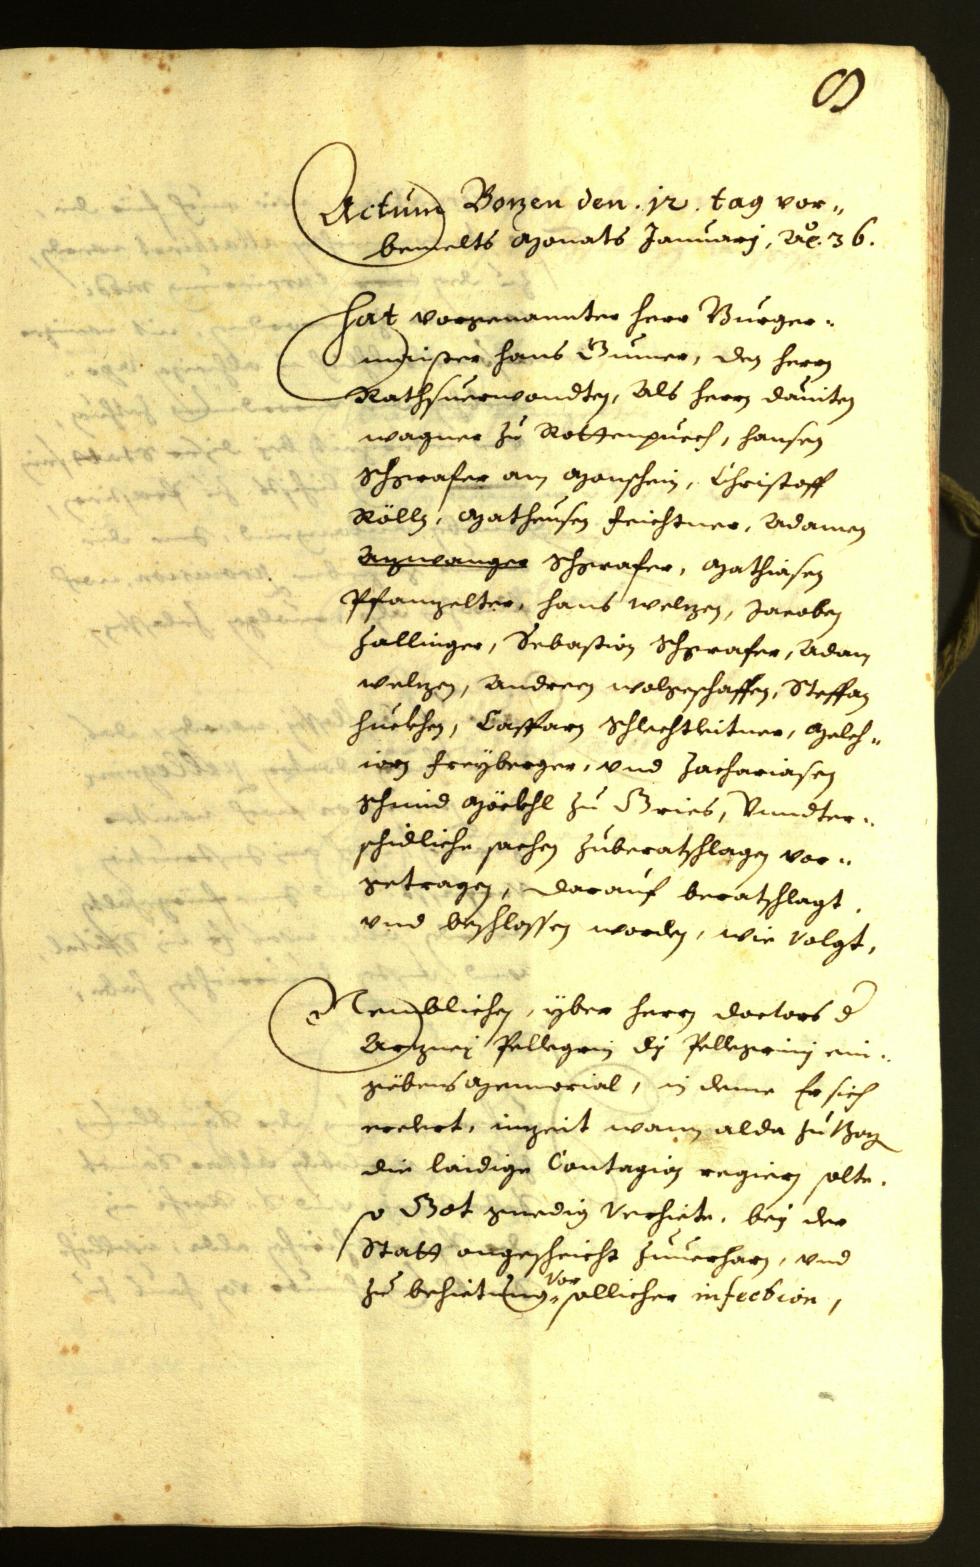 8
Actum Bozen den .12. tag vor„
bemelts Monats Januarj, Ao. 36.
Hat vorgenannter Herr Burger„
maister Hans Gumer, den Herrn
Rathsverwondten, Als Herrn Daviten
Wagner zu Rottenpuech, Hansen
Schgrafer am Monschein, Christoff
Rölln, Matheusen Feichtner, Adamen
Schgrafer, Mathiasen
Pfanzelter, Hans Welzen, Jacoben
Zallinger, Sebastion Schgrafer, Adam
Welzen, Andreen Wolgeschaffen, Steffan
Huebher, Casparn Schlechtleitner, Melch„
iorn Freyberger, und Zachariasen
Schmid Möckhl zu Gries, Unndter„
schidliche sachen zuberatschlagen vor„
getragen, Darauf beratschlagt,
und beschlossen worden, wie Volgt,
Nemblichen, yber Herrn Doctors d
Arznej Pellegrin Dj Pellegrinj ein„
gebens Memorial, in deme Er sich
, imzeit wann alda zu Bozn
die laidige Contagion regiern solte,
so Got gnedig Verhiete, bey der
Statt ongescheicht Zuverharn, und
Zu behietung Vor sollicher infection,